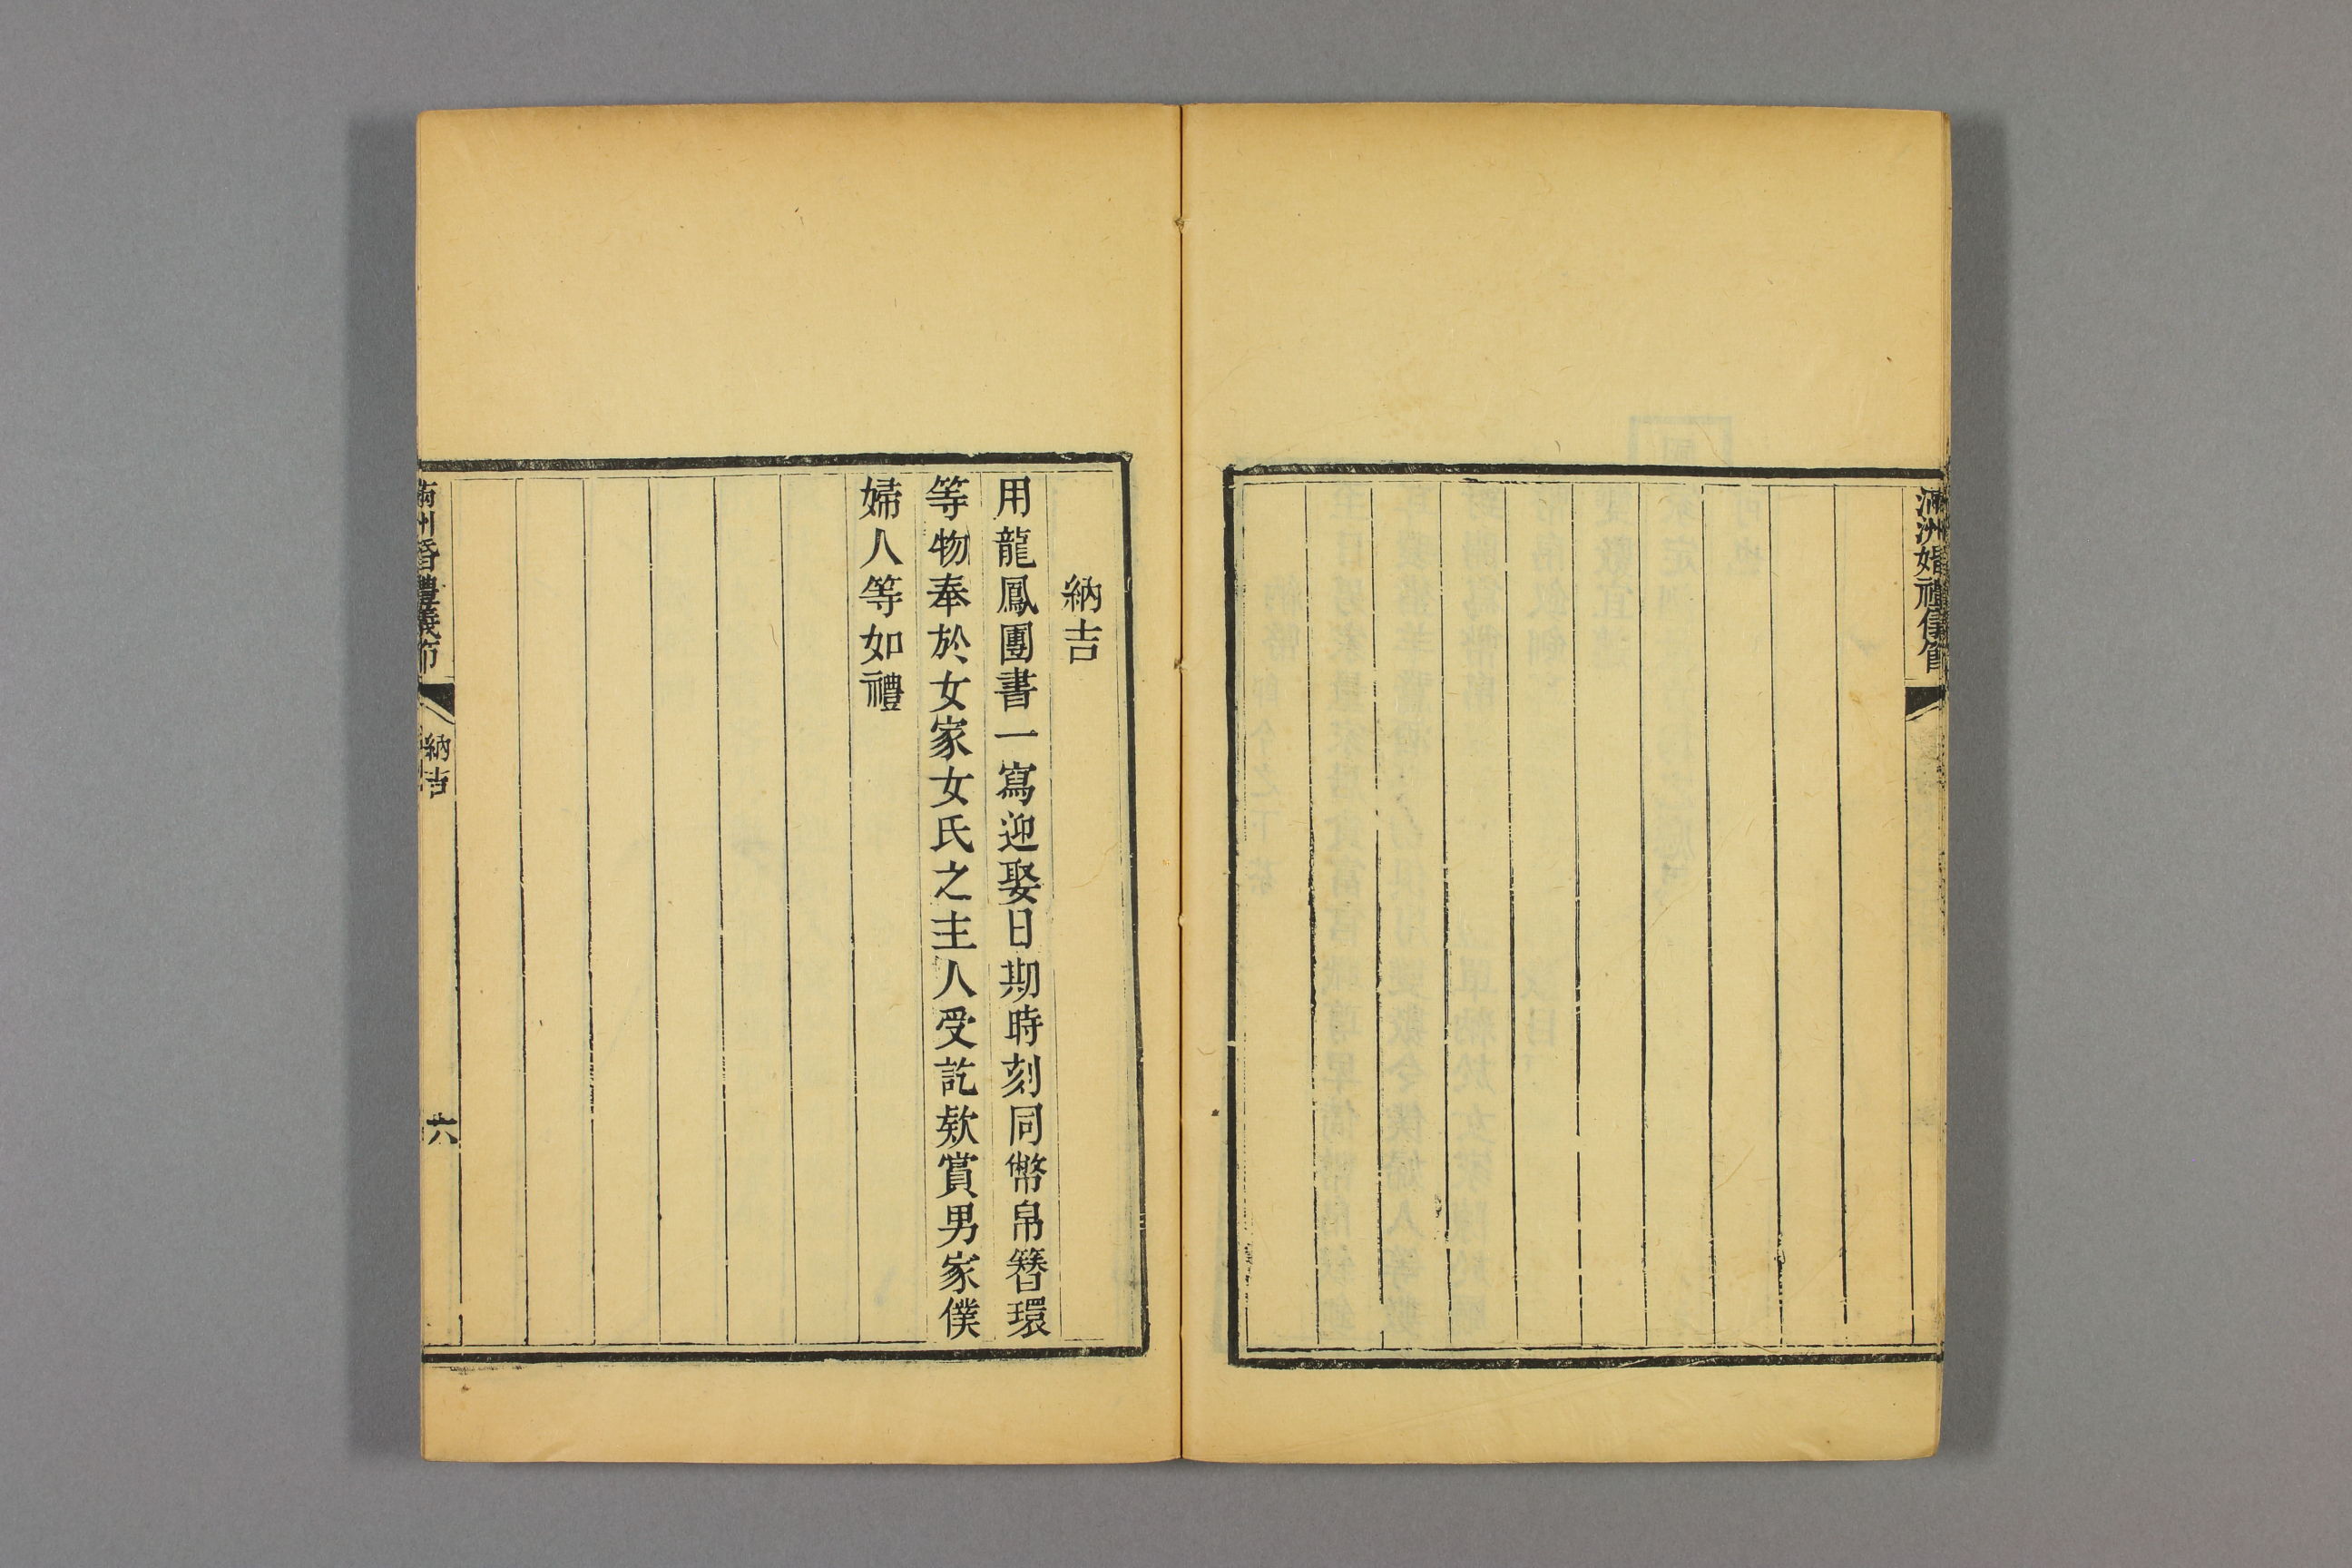 滿洲婚禮儀節
納吉
用龍鳳團書一寫迎娶日期時刻同幣帛簪環
等物奉於女家女氏之主人受訖欵賞男家僕
婦人等如禮
滿洲婚禮儀節
納吉
六